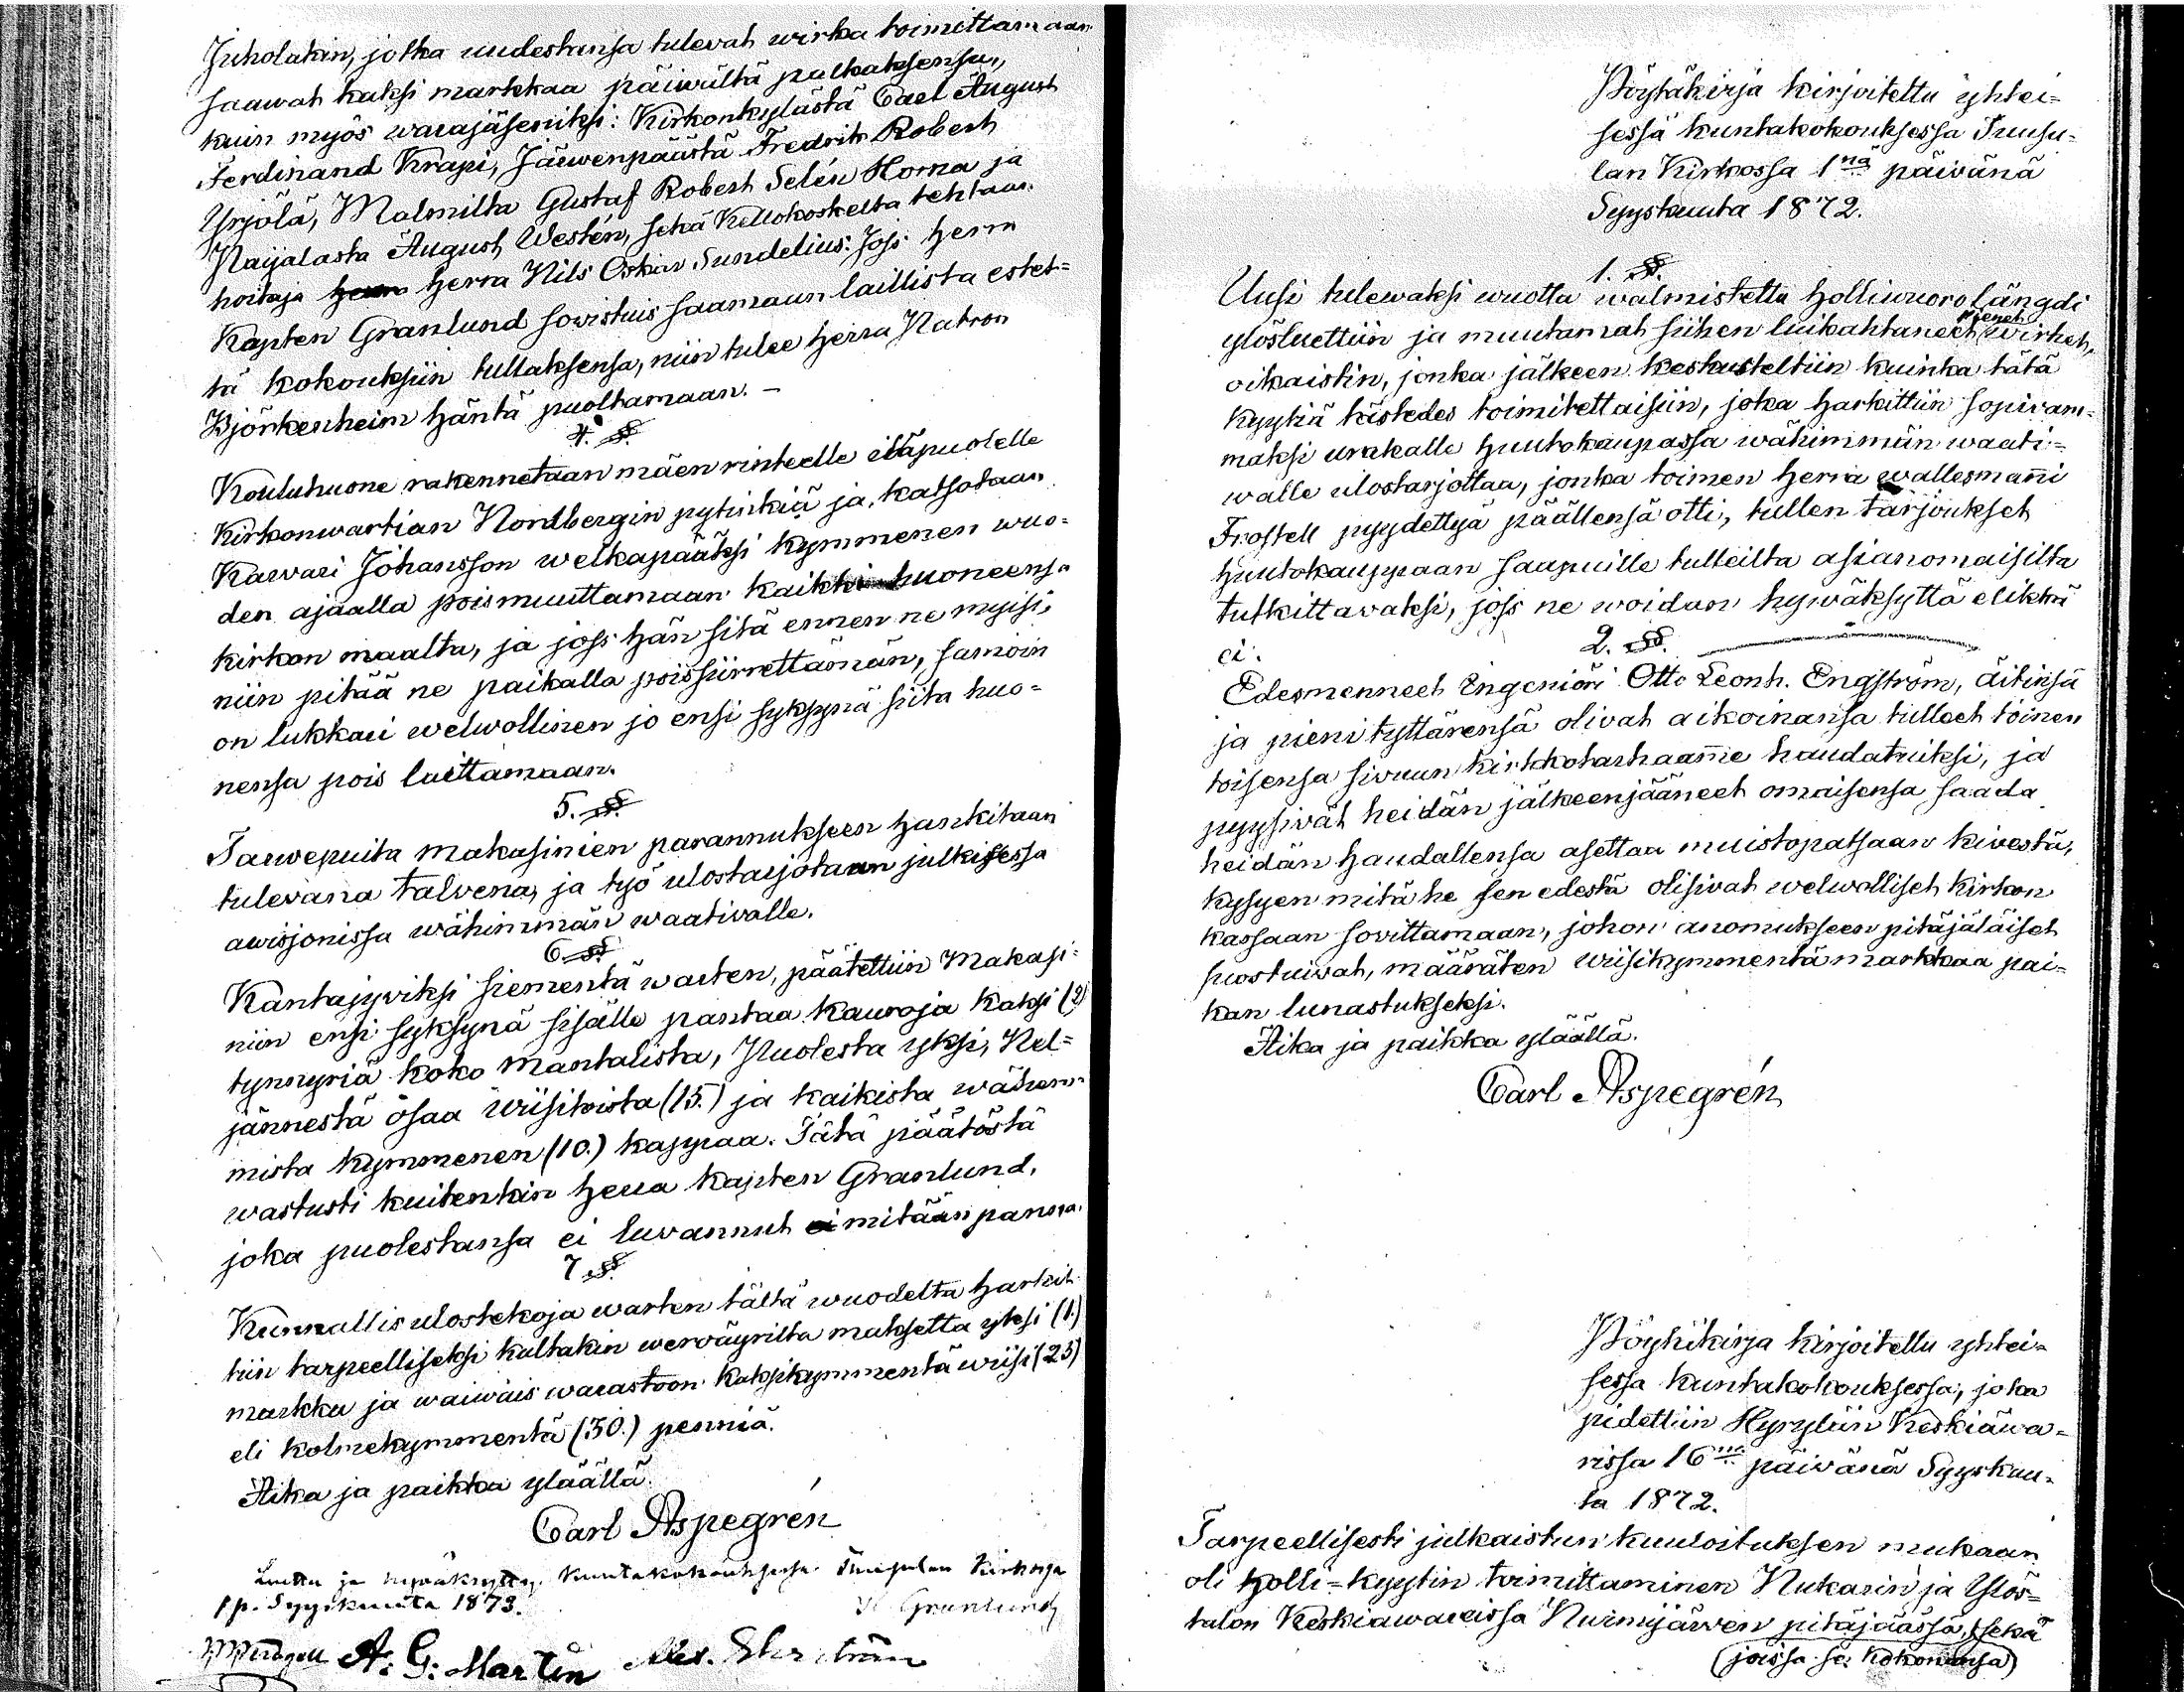 Juholakin, jotka uudestansa tulevat wirka toimittamaan
saawat kaksi markkaa päiwältä palkaksensa,
kuin myös warajäseniksi: Kirkonkylästä Carl August
Ferdinand Krapi, Järwenpäästä Fredrik Robert
Yrjölä, Malmilta Gustaf Robert Selén Horna ja
Nayalasta August Westén, sekä Kellokoskelta tehtaan
hoitaja herra Nils Oskar Sundelius. Joss herra
Kapten Granlund sowistuis saamaan laillista estet=
tä kokouksiin tullaksensa, niin tulee herra Natron
Björkenheim häntä puoltamaan. –
4. §.
Kouluhuone rakennetaan mäen rinteelle itäpuolelle
Kirkonwartian Nordbergin pytinkiä ja katsotaan
Karvari Johansson welkapääksi kymmenen wuo=
den ajaalla poismuuttamaan kaikki huoneensa
kirkon maalta, ja joss hän sitä ennen ne myisi,
niin pitää ne paikalla poissiirrettämän, samoin
on lukkari welwollinen jo ensi syksynä siitä huo=
nensa pois laittamaan.
5. §.
Tarwepuita makasinien parannukseen hankitaan
tulevana talvena, ja työ ulostarjotaan julkisessa
awisjonissa wähimmän waativalle.
6 §.
Kantajyviksi siementä warten, päätettiin Makasi=
niin ensi syksynä sisälle pantaa kauroja kaksi (2)
tynnyriä koko mantalista, Puolesta yksi, Nel=
jännestä osaa wiisitoista (15.) ja kaikista wähem=
mista kymmenen (10.) kappaa. Tätä päätöstä
wastusti kuitenkin herra kapten Granlund,
joka puolestansa ei luvannut mitään panna.
7 §.
Kunnallis ulostekoja warten tältä wuodelta harkit=
tiin tarpeelliseksi kultakin werräyriltä maksetta yksi (1.)
markka ja waiwais warastoon kaksikymmentä wiisi (25)
eli kolmekymmentä (30.) penniä.
Aika ja paikka ylläällä.
Carl Aspegrén
Luettu ja hywäksytty kuntakokouksessa Tuusulan Kirkossa
1 p. Syyskuuta 1873.
Granlund
A: G: Martin Alex.
Pöytäkirja kirjoitettu yhtei=
sessä kuntakokouksessa Tuusu=
lan Kirkossa 1nä päivänä
Syyskuuta 1872.
1. §.
Uusi tulewaksi wuotta walmistettu hollivuoro längdi
ylösluettiin ja muutamat siihen luikahtaneet pienet wirheet,
oikaistin, jonka jälkeen keskusteltiin kuinka tätä
kyytiä tästedes toimitettaisiin, joka harkittiin sopivam=
maksi urakalle huutokaupassa wähimmän waati=
walle ulostarjottaa, jonka toimen herra wallesmanni
Frostell pyydettyä päällensä otti, tullen tarjoukset
huutokauppaan saapuille tulleilta asianomaisilta
tutkittavaksi, joss ne woidan hywäksyttä elikkä
ei.
2. §.
Edesmenneet Engeniöri Otto Leonh. Engström, äitinsä
ja pieni tyttärensä olivat aikoinansa tulleet toinen
toisensa sivuun kirkkotarhaamme haudatuiksi, ja
pyysivät heidän jälkeenjääneet omaisensa saada
heidän haudallensa asettaa muistopatsaan kivestä,
kysyen mitä he sen edestä olisivat welwolliset kirkon
kassaan sovittamaan, johon anomukseen pitäjäläiset
suostuivat, määräten wiisikymmentä markkaa pai=
kan lunastukseksi.
Aika ja paikka ylläällä.
Carl Aspegrén
Pöytäkirja kirjoitettu yhtei=
sessa kuntakokouksessa, joka
pidettiin Hyrylän Keskiäwa=
rissa 16na päivänä Syyskuu=
ta 1872.
Tarpeellisesti julkaistun kuuloituksen mukaan
oli holli=kyytin toimittaminen Nukarin ja Ylös=
talon Keskiawareissa Nurmijärven pitäjäässä, sekä
(joissa se kokonansa)